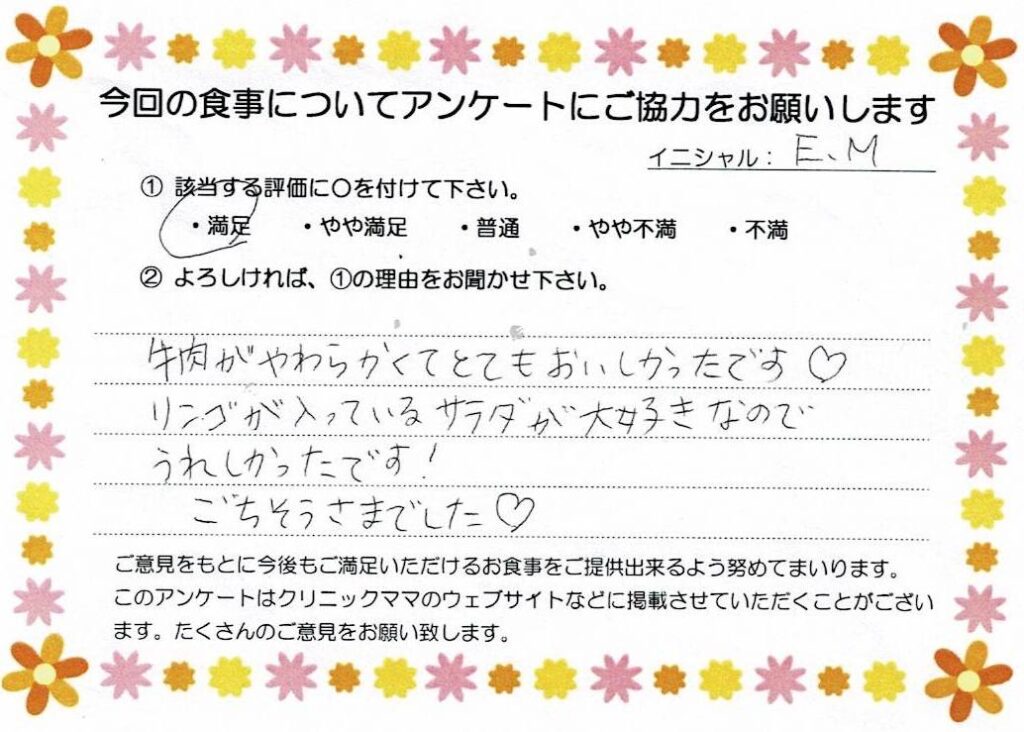 今回の食事についてアンケートにご協力をお願いします
イニシャル： E、M
① 該当する評価に〇を付けて下さい。
・満足 ・やや満足 ・普通 ・やや不満 ・不満
② よろしければ、①の理由をお聞かせ下さい。
牛肉がやわらかくてとてもおいしかったです♡
リンゴが入っているサラダが大好きなので
うれしかったです！
ごちそうさまでした♡
ご意見をもとに今後もご満足いただけるお食事をご提供出来るよう努めてまいります。
このアンケートはクリニックママのウェブサイトなどに掲載させていただくことがござい
ます。たくさんのご意見をお願い致します。